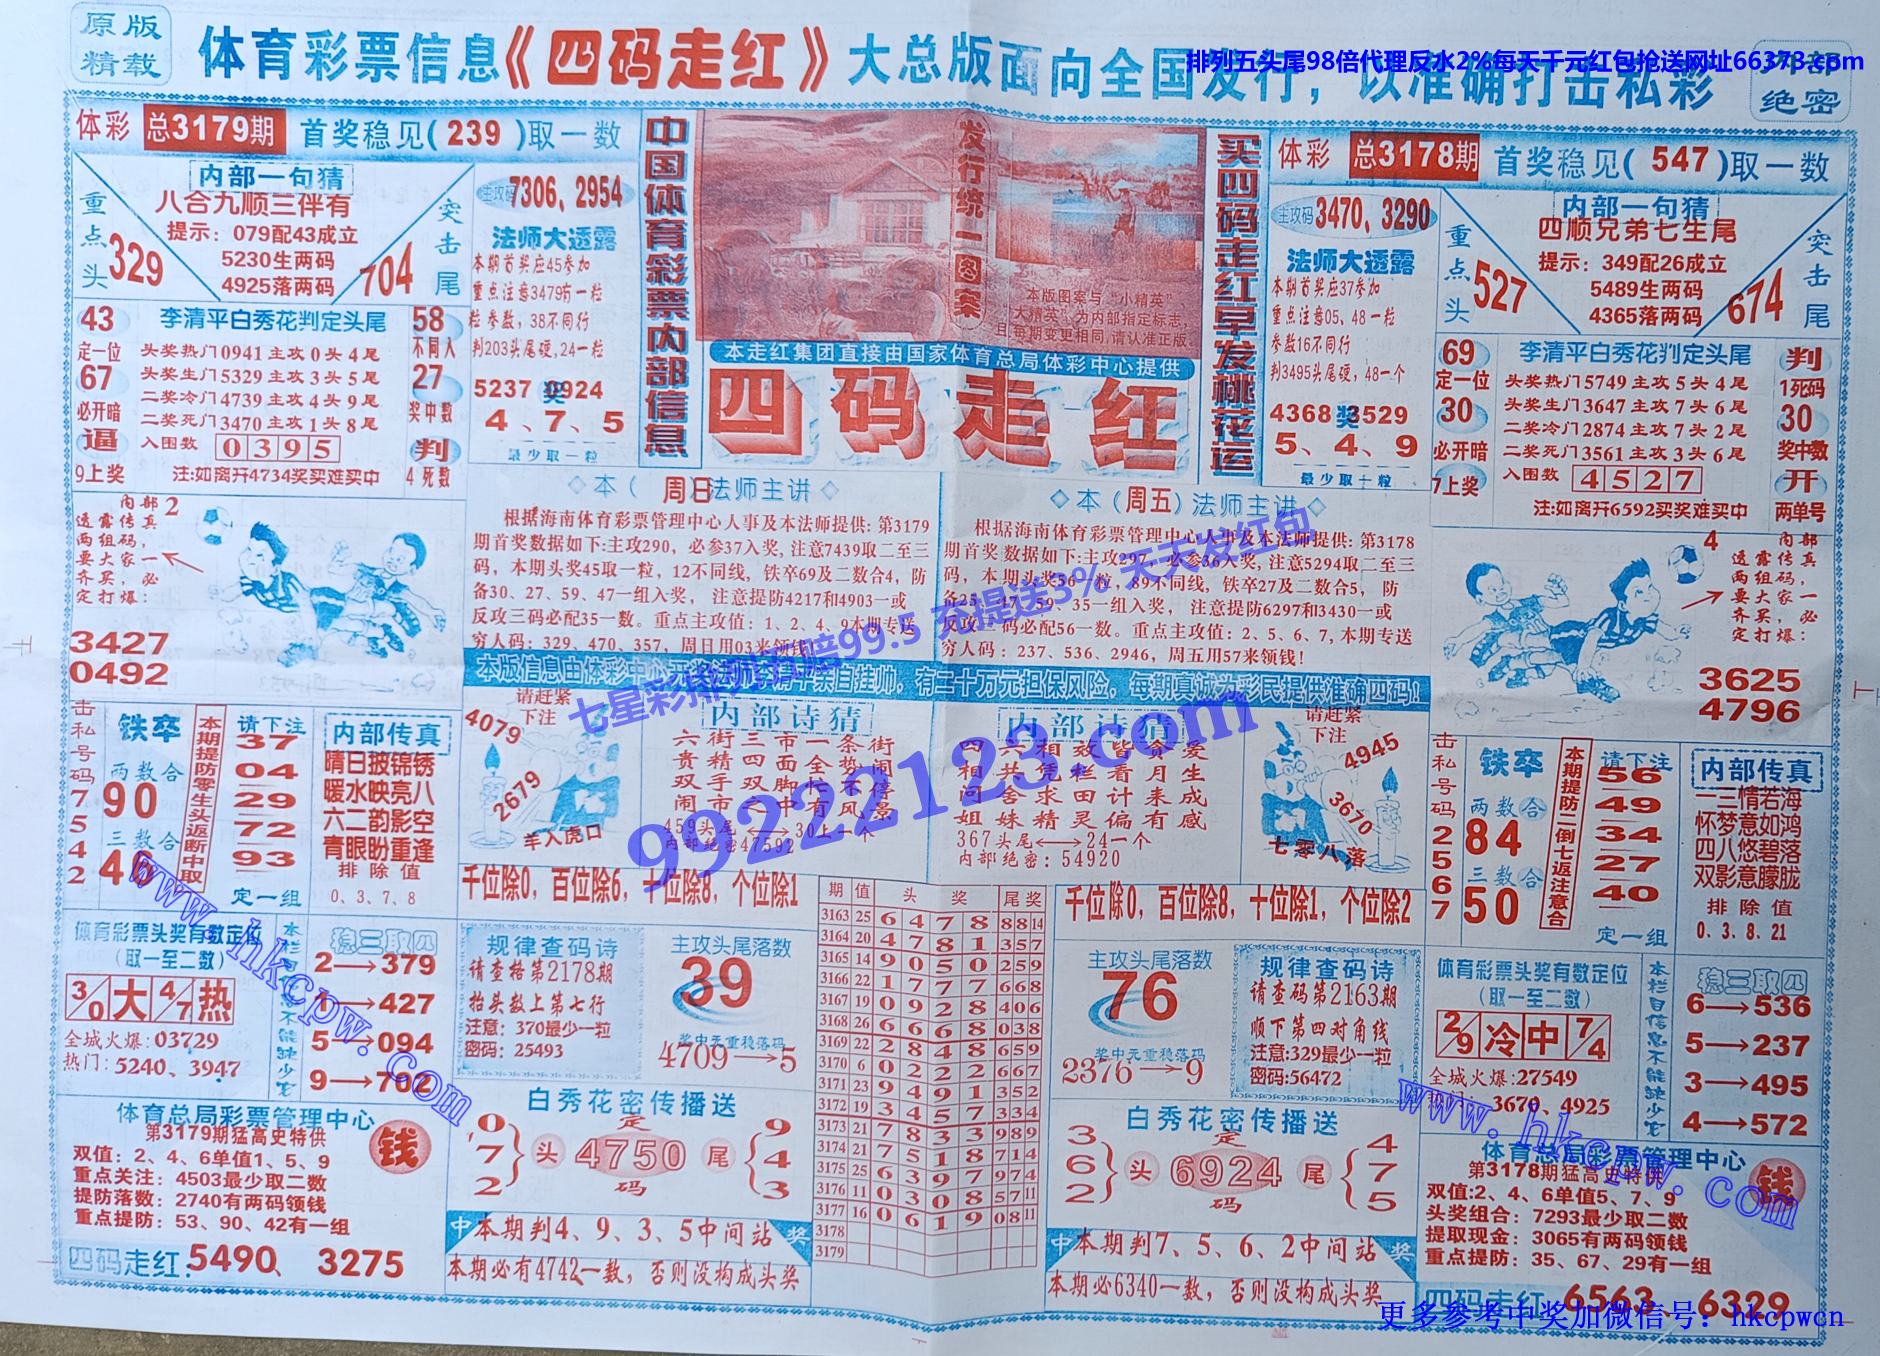 原版
精载
体育彩票信息《四码走红》大总版面向全国发行，以准确打击私彩
排列五头尾98倍代理反水2%每天千元红包抢送网址66373.com
内部
绝密
体彩 总3179期 首奖稳见(239)取一数
内部一句猜
八合九顺三伴有
提示：079配43成立
5230生两码
4925落两码
重点头
329
突击尾
704
主攻码7306、2954
法师大透露
本期首奖应45参加
重点注意3479有一粒
粒参数，38不同行
判203头尾硬,24一粒
5237奖0924
4、7、5
最少取一粒
43
定一位
67
必开暗
逼
9上奖
李清平白秀花判定头尾
头奖热门0941主攻0头4尾
头奖生门5329主攻3头5尾
二奖冷门4739主攻4头9尾
二奖死门3470主攻1头8尾
入围数 0395
注:如离开4734奖买难买中
58
不同人
27
奖中数
判
4死数
中国体育彩票内部信息
发行统一图案
本版图案与“小精英”
大精英”为内部指定标志，
且每期变更相同,请认准正版
本走红集团直接由国家体育总局体彩中心提供
四码走红
买四码走红早发桃花运
体彩 总3178期 首奖稳见(547)取一数
主攻码3470、3290
法师大透露
本期首奖应37参加
重点注意05、48一粒
参数16不同行
判3495头尾硬,48一个
4368奖3529
5、4、9
最少取一粒
内部一句猜
四顺兄弟七生尾
提示：349配26成立
5489生两码
4365落两码
重点头
527
突击尾
674
69
定一位
30
必开暗
7上奖
李清平白秀花判定头尾
头奖热门5749主攻5头4尾
头奖生门3647主攻7头6尾
二奖冷门2874主攻7头2尾
二奖死门3561主攻3头6尾
入围数 4527
注:如离开6592买奖难买中
判
1死码
30
奖中数
开
两单号
内部2
透露传真
两组码，
要大家一
齐买，必
定打爆：
3427
0492
◇本（周日）法师主讲◇
根据海南体育彩票管理中心人事及本法师提供: 第3179
期首奖数据如下:主攻290，必参37入奖, 注意7439取二至三
码，本期头奖45取一粒，12不同线, 铁卒69及二数合4，防
备30、27、59、47一组入奖，注意提防4217和4903一或
反攻三码必配35一数。重点主攻值：1、2、4、9本期专送
穷人码：329、470、357，周日用03来领钱
◇本（周五）法师主讲◇
根据海南体育彩票管理中心人事及本法师提供: 第3178
期首奖数据如下:主攻297，必参36入奖, 注意5294取二至三
码，本期头奖56一粒，89不同线, 铁卒27及二数合5，防
备25、47、59、35一组入奖，注意提防6297和3430一或
反攻三码必配56一数。重点主攻值：2、5、6、7, 本期专送
穷人码：237、536、2946，周五用57来领钱!
七星彩排列五赔99.5 充提送3% 天天发红包
99222123.com
内部
4
透露传真
两组码，
要大家一
齐买，必
定打爆：
3625
4796
击私号码7542
铁卒
两数合
90
三数合
46
本期提防零生头返断中取
请下注
37
04
29
72
93
定一组
内部传真
晴日披锦锈
暖水映亮八
六二韵影空
青眼盼重逢
排除值
0、3、7、8
请赶紧
下注
4079
2679
羊入虎口
内部诗猜
六街三市一条街
贵精四面全势闹
双手双脚忙不停
闹市六中有风景
459头尾⟷30上一个
内部绝密47592
内部诗猜
四六相致皆贪爱
相共凭栏看月生
问舍求田计来成
姐妹精灵偏有感
367头尾⟷24一个
内部绝密：54920
请赶紧
下注
4945
3670
七零八落
击私号码2567
铁卒
两数合
84
三数合
50
本期提防二倒七返注意合
请下注
56
49
34
27
40
定一组
内部传真
一三情若海
怀梦意如鸿
四八悠碧落
双影意朦胧
排除值
0、3、8、21
千位除0，百位除6，十位除8，个位除1
千位除0，百位除8，十位除1，个位除2
体育彩票头奖有数定位
(取一至二数)
3/0 大 4/7 热
全城火爆：03729
热门：5240、3947
稳三取四
2→379
1→427
5→094
9→702
规律查码诗
请查格第2178期
抬头数上第七行
注意：370最少一粒
密码：25493
主攻头尾落数
39
奖中元重稳落码
4709→5
期 值 头奖 尾奖
3163 25 6478 88 14
3164 20 4781 357
3165 14 9050 259
3166 22 1777 668
3167 19 0928 406
3168 26 6668 038
3169 22 2848 659
3170 6 0222 667
3171 23 9491 352
3172 19 3457 334
3173 21 7833 989
3174 21 7518 714
3175 25 6397 974
3176 11 0308 57 11
3177 16 0619 08 11
3178
3179
主攻头尾落数
76
奖中元重稳落码
2376→9
规律查码诗
请查码第2163期
顺下第四对角线
注意:329最少一粒
密码:56472
体育彩票头奖有数定位
(取一至二数)
2/9 冷 中 7/4
全城火爆:27549
3670、4925
稳三取四
6→536
5→237
3→495
4→572
体育总局彩票管理中心
第3179期猛高史特供
钱
双值：2、4、6单值1、5、9
重点关注：4503最少取二数
提防落数：2740有两码领钱
重点提防：53、90、42有一组
四码走红:5490、3275
白秀花密传播送
0
7
2
头
定
4750
码
尾
9
4
3
中 本期判4、9、3、5中间站 奖
本期必有4742一数，否则没构成头奖
白秀花密传播送
3
6
2
头
定
6924
码
尾
4
7
5
中 本期判7、5、6、2中间站 奖
本期必6340一数，否则没构成头奖
体育总局彩票管理中心
第3178期猛高史特供
钱
双值:2、4、6单值5、7、9
头奖组合：7293最少取二数
提取现金：3065有两码领钱
重点提防：35、67、29有一组
四码走红:6563、6329
www.hkcpw.com
www.hkcpw.com
更多参考中奖加微信号：hkcpwcn